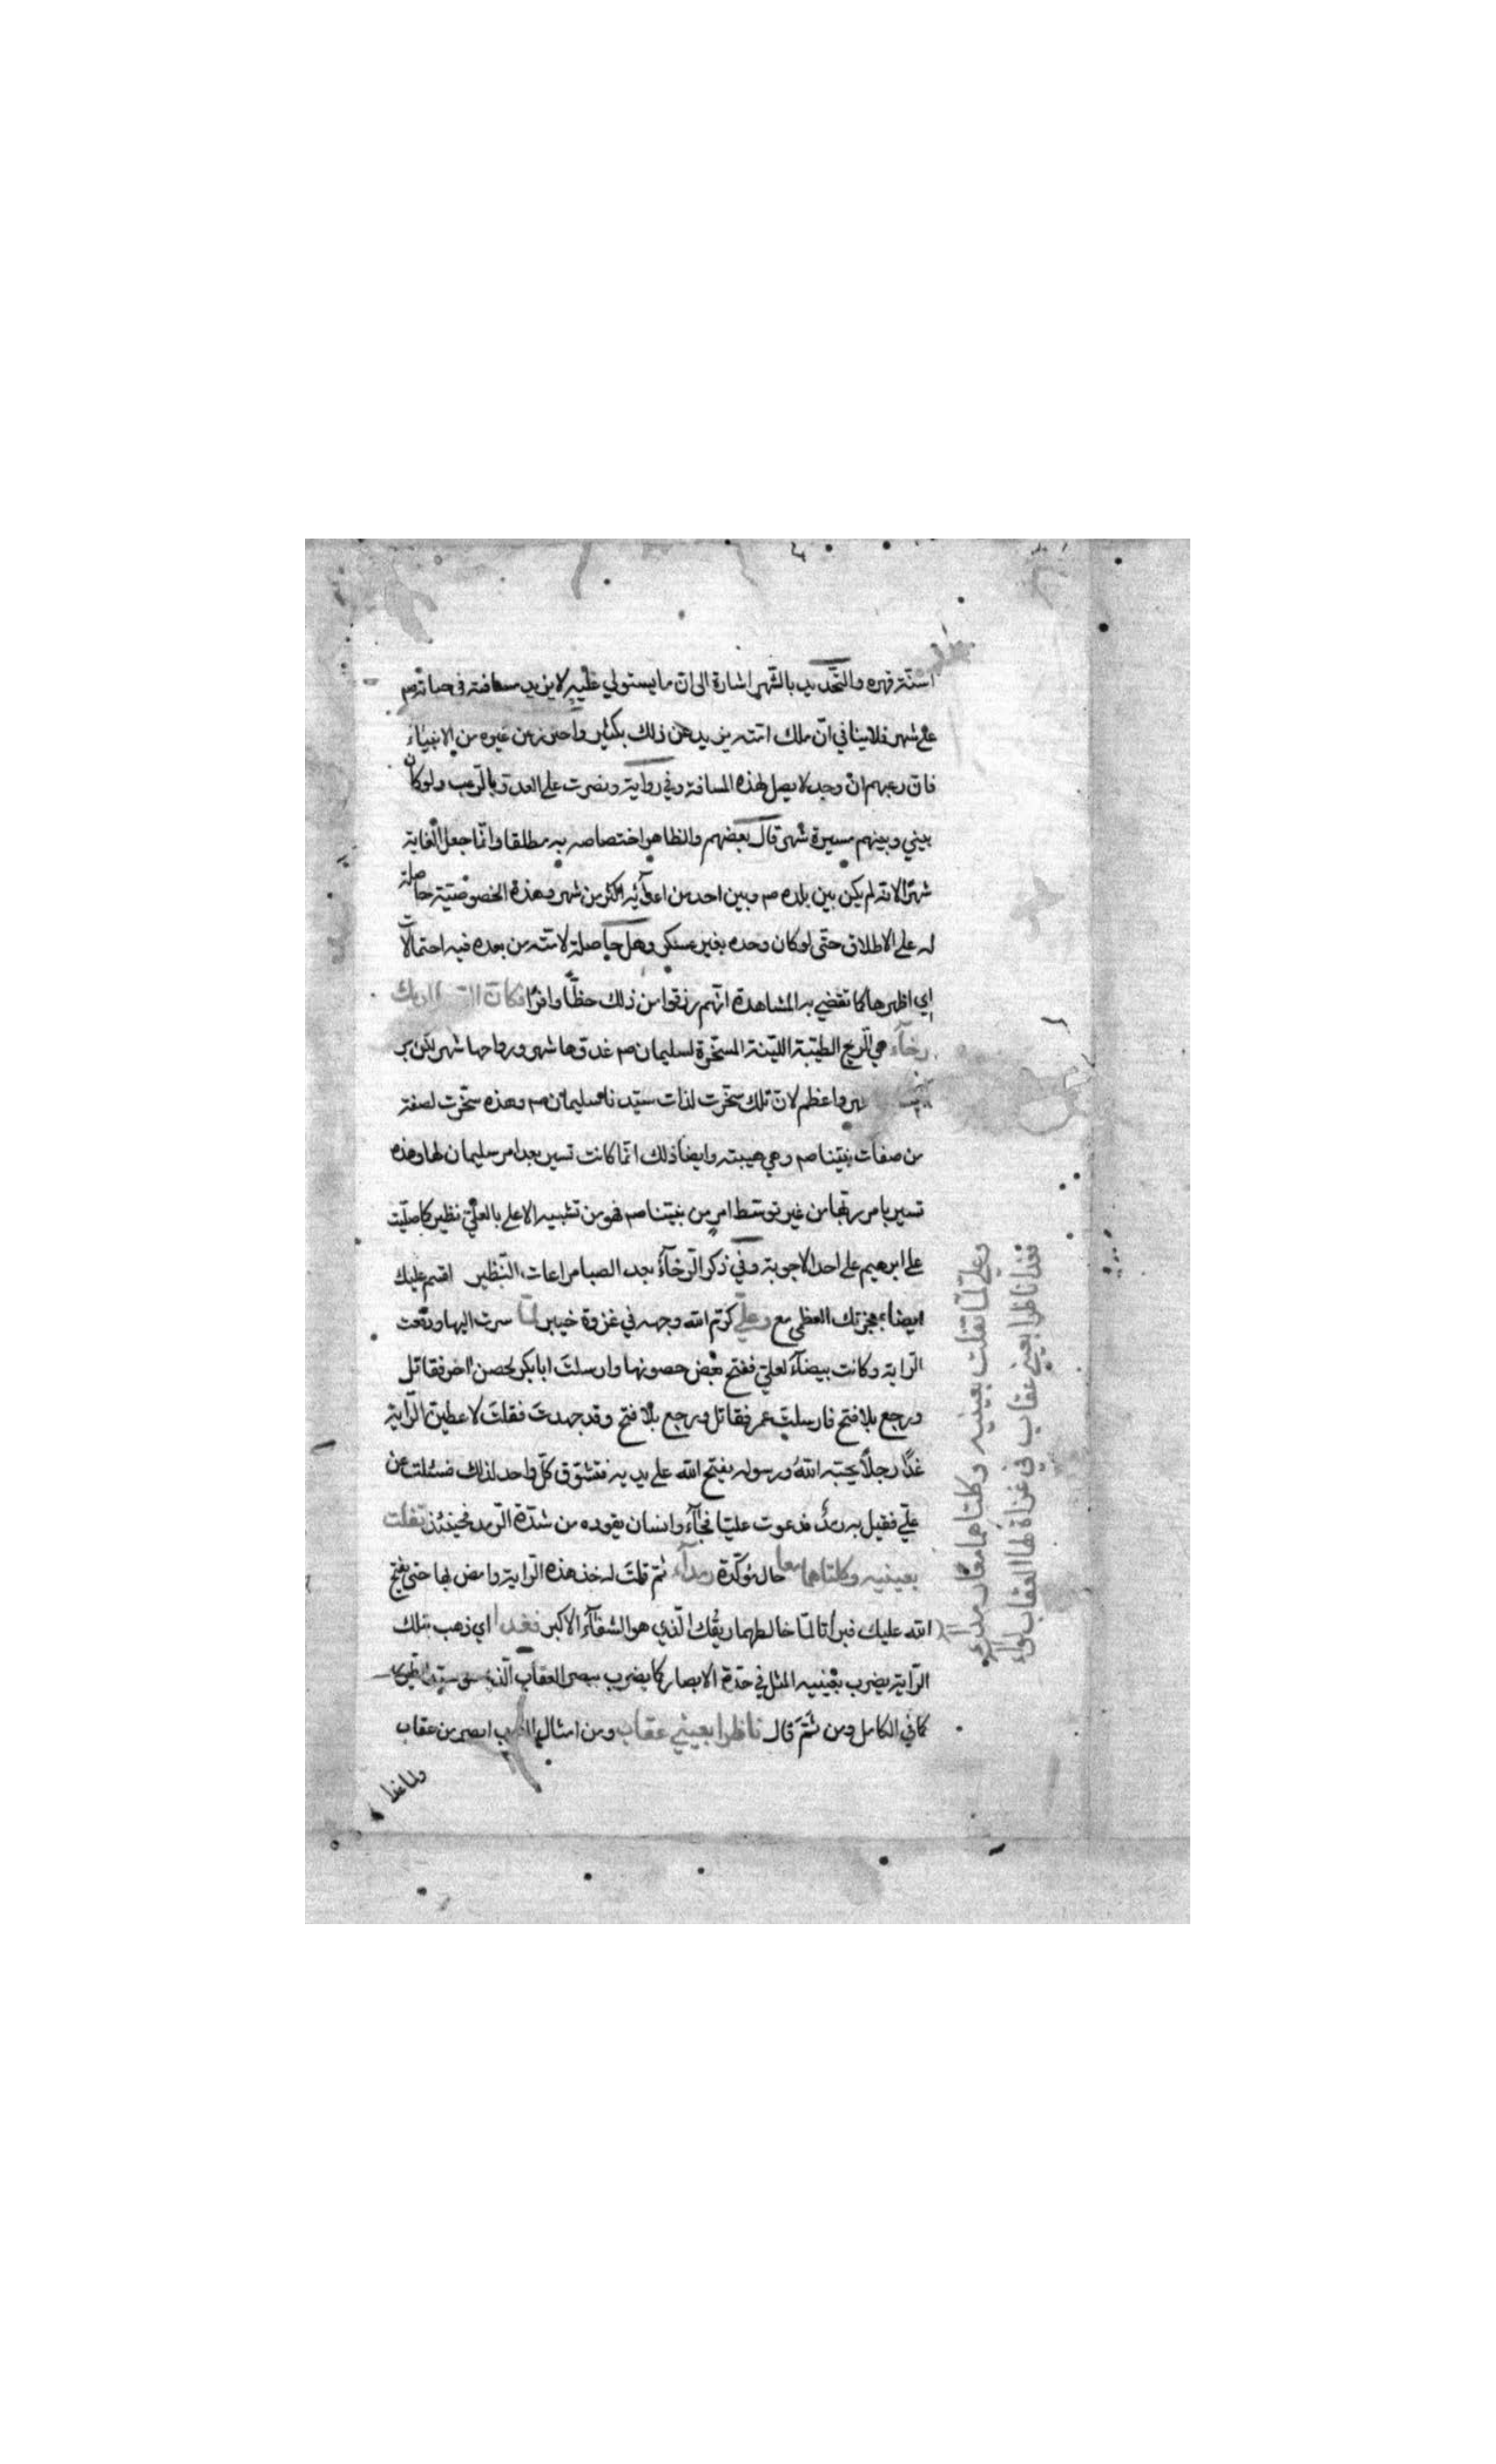 اسنّة قهره والتحديد بالشهر اشارة الى ان ما يستولي عليه لا يزيد مسافته في حياته صم
على شهر فلا ينافي انّ ملك امته يزيد عن ذلك بكثير واحترز عن غيره من الانبياء
فان رعبهم ان وجد لا يصل لهذه المسافة وفي رواية ونصرت على العدوّ بالرّعب ولو كان
بيني وبينهم مسيرة شهر قال بعضهم والظاهر اختصاصه به مطلقا وانّما جعل الغاية
شهرًا لانه لم يكن بين بلده صم وبين احد من اعدآئه اكثر من شهر وهذه الخصوصيّة حاصلة
له على الاطلاق حتّى لو كان وحده بغير عسكر وهل حاصلة لامّته من بعده فيه احتمالات
اي اظهرها كما تقضي به المشاهدة انّهم رزقوا من ذلك حظّا وافرًا فكانّ الصبا لديك
رخآء هي الرّيح الطيّبة الليّنة المسخّرة لسليمان صم غدوّها شهر ورواحها شهر لكن
واعظم لانّ تلك سخّرت لذات سيّدنا سليمان صم وهذه سخّرت لصفة
من صفات نبيّنا صم وهي هيبته وايضا ذلك انّما كانت تسير بعد امر سليمان لها وهذه
تسير بامر ربّها من غير توسّط امر من نبيّنا صم فهو من تشبيه الاعلى بالعليّ نظير كما صلّيت
على ابرهيم على احد الاجوبة وفي ذكر الرّخآء بعد الصبا مراعات النّظير اقسم عليك
ايضا بمعجزتك العظمى مع وعليّ كرّم الله وجهه في غزوة خيبر لمّا سرت اليها ودفعت
الرّاية وكانت بيضآء لعليّ ففتح بعض حصونها وارسلتَ ابا بكر لحصن اخر فقاتل
ورجع بلا فتح فارسلت عمر فقاتل ورجع بلا فتح وقد جهدت فقلتَ لاعطينّ الرّاية
غدًا رجلًا يحبّه اللهُ ورسوله يفتح الله على يديه فتشوّق كلّ واحد لذلك فسئلت عن
عليّ فقيل به رمدٌ فدعوت عليّا فجآء وانسان يقوده من شدّة الرّمد فحينئذ تفلت
بعينيه وكلتاهما معا حال مؤكّدة رمدآء ثم قلتَ له خذ هذه الرّاية وامض بها حتى يفتح
الله عليك فبرأتا لمّا خالطهما ريقُك الّذي هو الشفآء الاكبر فغدا اي ذهب بتلك
الرّاية يضرب بعينيه المثل في حدّة الابصار كما يضرب ببصر العقاب الّذي سيّد الطيور
كما في الكامل ومن ثَمَّ قال ناظرا بعيني عقاب ومن امثال العرب ابصر من عقاب
ولما غدا
وعليّ لمّا تفلت بعينيه وكلتاهما معًا رمدآء
فغدا ناظرا بعيني عقاب في غزاة لها العقاب لواء